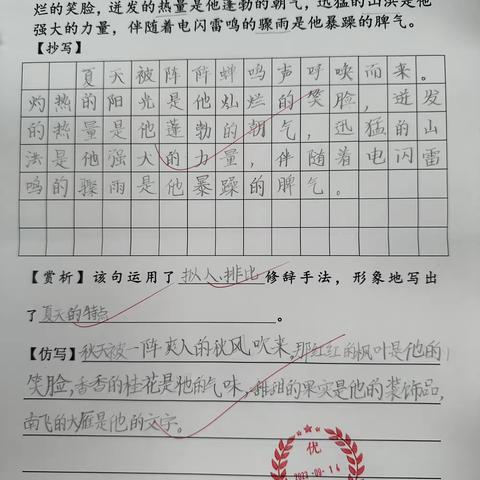 烂的笑脸，迸发的热量是他蓬勃的朝气，迅猛的山洪是他
强大的力量，伴随着电闪雷鸣的骤雨是他暴躁的脾气。
【抄写】
夏天被阵阵蝉鸣声呼唤而来。
灼热的阳光是他灿烂的笑脸，迸发
的热量是他蓬勃的朝气，迅猛的山
法是他强大的力量，伴随着电闪雷
鸣的骤雨是他暴躁的脾气。
【赏析】该句运用了拟人、排比修辞手法，形象地写出
了夏天的特点。
【仿写】秋天被一阵爽人的秋风吹来，那红红的枫叶是他的
笑脸，香香的桂花是他的气味，甜甜的果实是他的装饰品，
南飞的大雁是他的文字。
优
2023-09-14